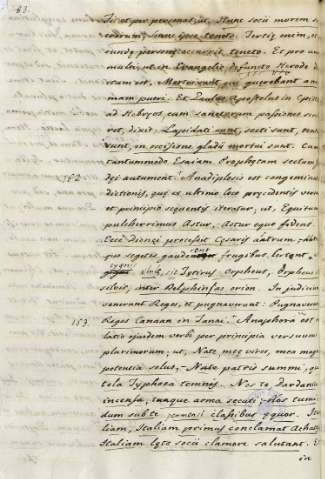 83.
sunt, per personas, ut, Hunc socii morem s
cedrum, hunc ipse teneto. Tertia enim, n
cundę personę occurrit, teneto. Et pro un
multi, ut in Evangelio, defuncto Herode d
ctum est, Mortui sunt, qui quęrebant ani
mam pueri. Et Paulus Apostolus in Epist
ad Hebręos, cum sanctorum passiones
ret, dixit: Lapidati sunt, secti sunt, ten
sunt, in occisione gladii mortui sunt. Cum
tantummodo Esaiam Prophetam sectum
dęi autument. Anadiplosis est congemin
152.
dictionis, quę ex ultimo loco pręcedentis ver
et principio sequentis iteratur, ut, Sequitur
pulcherrimus Astur, Astur equo fidens.
Ecce Dionęi processit Cęsaris astrum, astr
quo segetes gauderent frugibus, Certent
cygnis ululę, sit Tytirus Orpheus, Orpheus
silvis, inter Delphinas orion. In judicium
venerunt Reges, et pugnaverunt: Pugnaverunt
153.
Reges Canaan in Tanac. Anaphora est
latio ejusdem verbi per principia versuum
plurimorum, ut, Nate, meę vires, mea mag
potentia solus, Nate patris summi, qu
tela Typhoea temnis. Nos te Dardania
incensa, tuaque arma secuti: Nos tumi
dum sub te permensi classibus ęquor. It
liam, Italiam primus conclamat Achat
Italiam lęto socii clamore salutant. Et
in